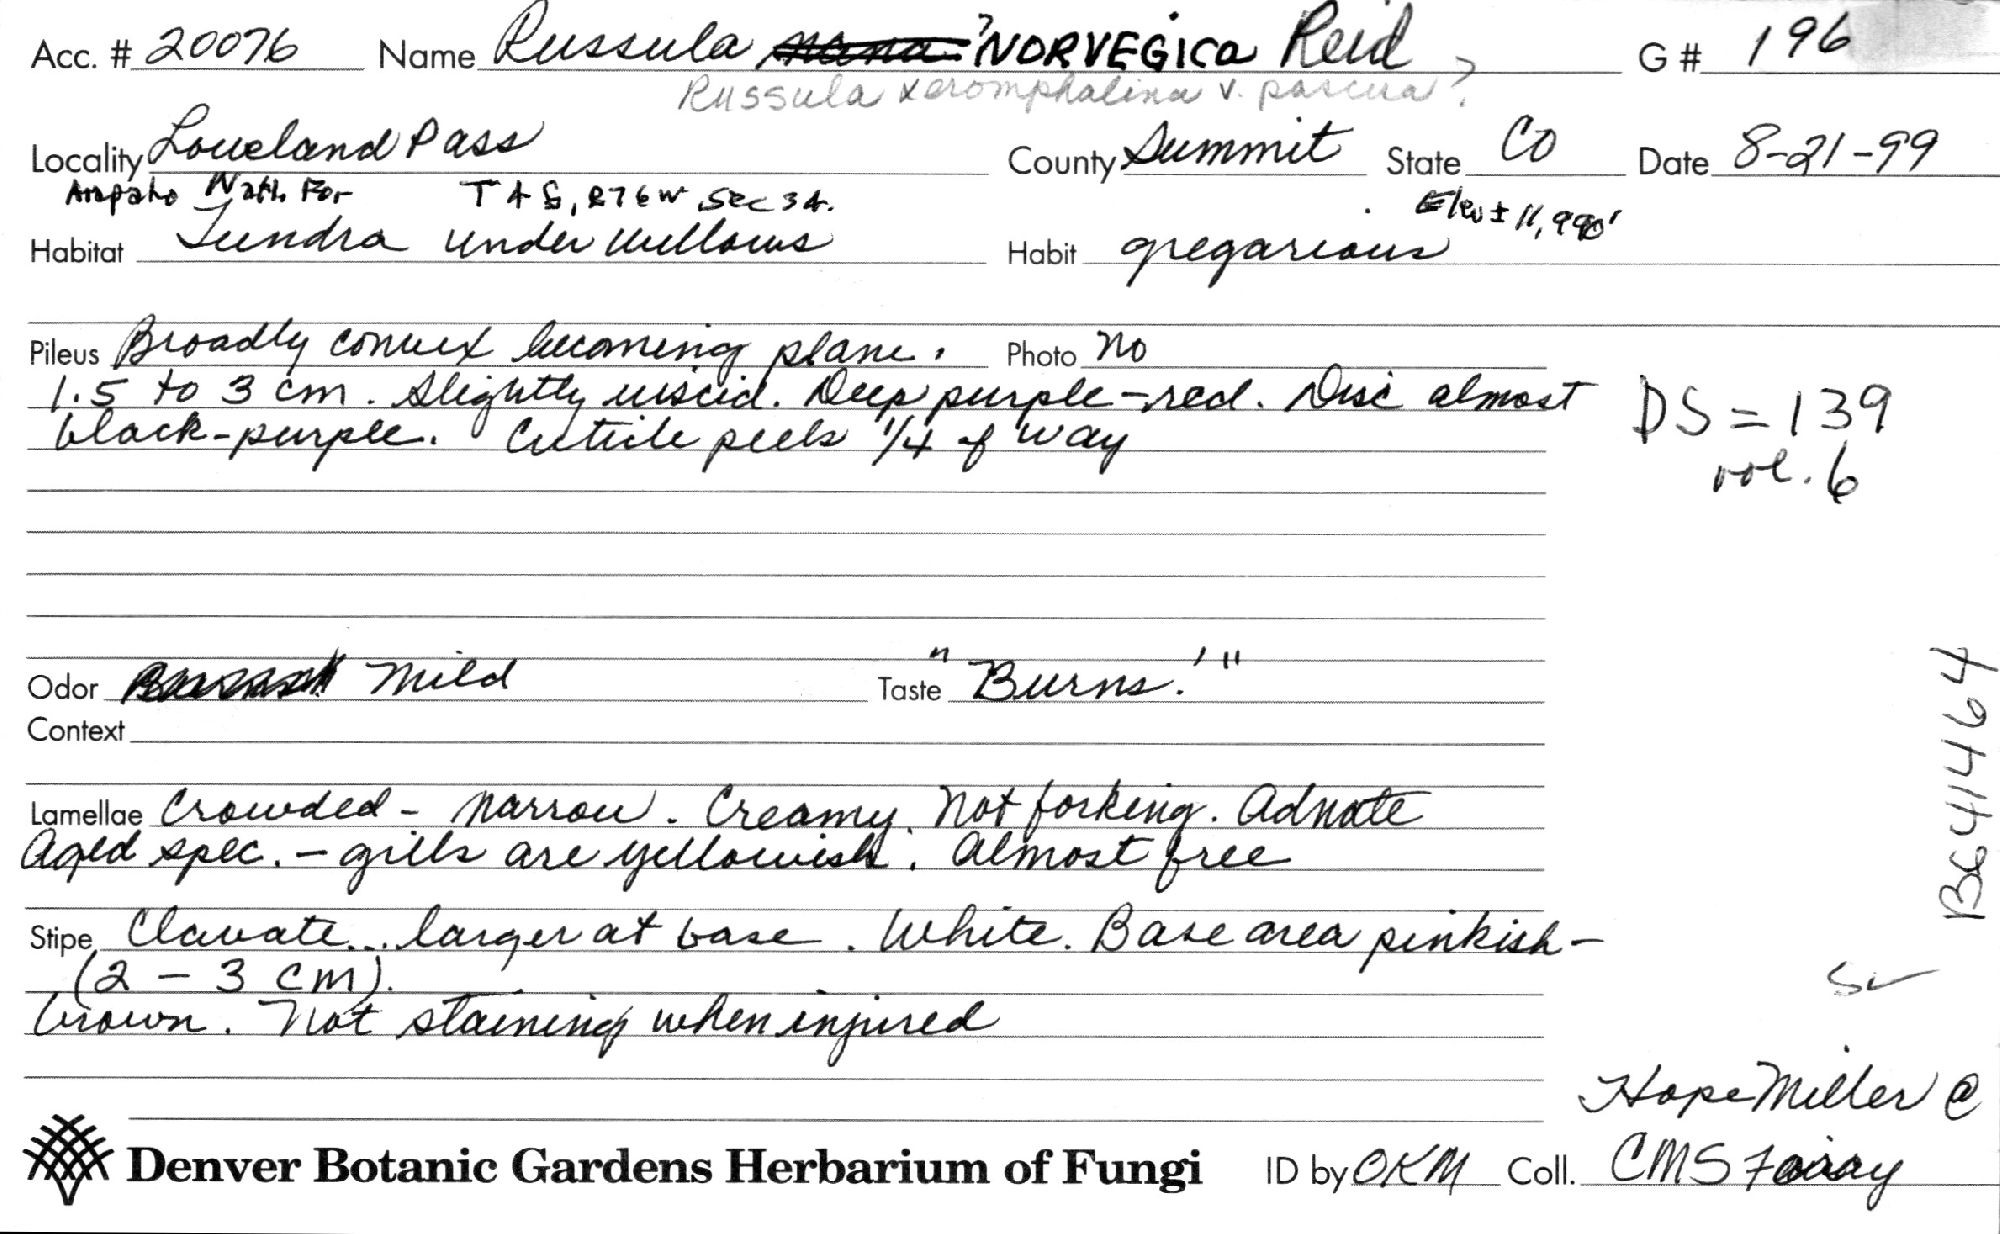 Acc. # 20076 Name Russula nana ?NORVEGICA Reid ? G # 196
Russula xeromphalina v. pascua?
Locality Loveland Pass County Summit State CO Date 8-21-99
Arapaho Natl. For T4S, R76W Sec 34. Elev ± 11,990'
Habitat Tundra under willows Habit gregarious
Pileus Broadly convex becoming plane. Photo no
1.5 to 3 cm. Slightly viscid. Deep purple-red. Disc almost
black-purple. Cuticle peels 1/4 of way
DS = 139
vol. 6
Odor Mild Taste "Burns!"
Context
Lamellae Crowded - narrow. Creamy. Not forking. Adnate
Aged spec. - gills are yellowish. Almost free
Stipe Clavate... larger at base. White. Base area pinkish-
(2 - 3 cm).
brown. Not staining when injured
B641464
Hope Miller @
Denver Botanic Gardens Herbarium of Fungi ID by OKM Coll. CMS Foray